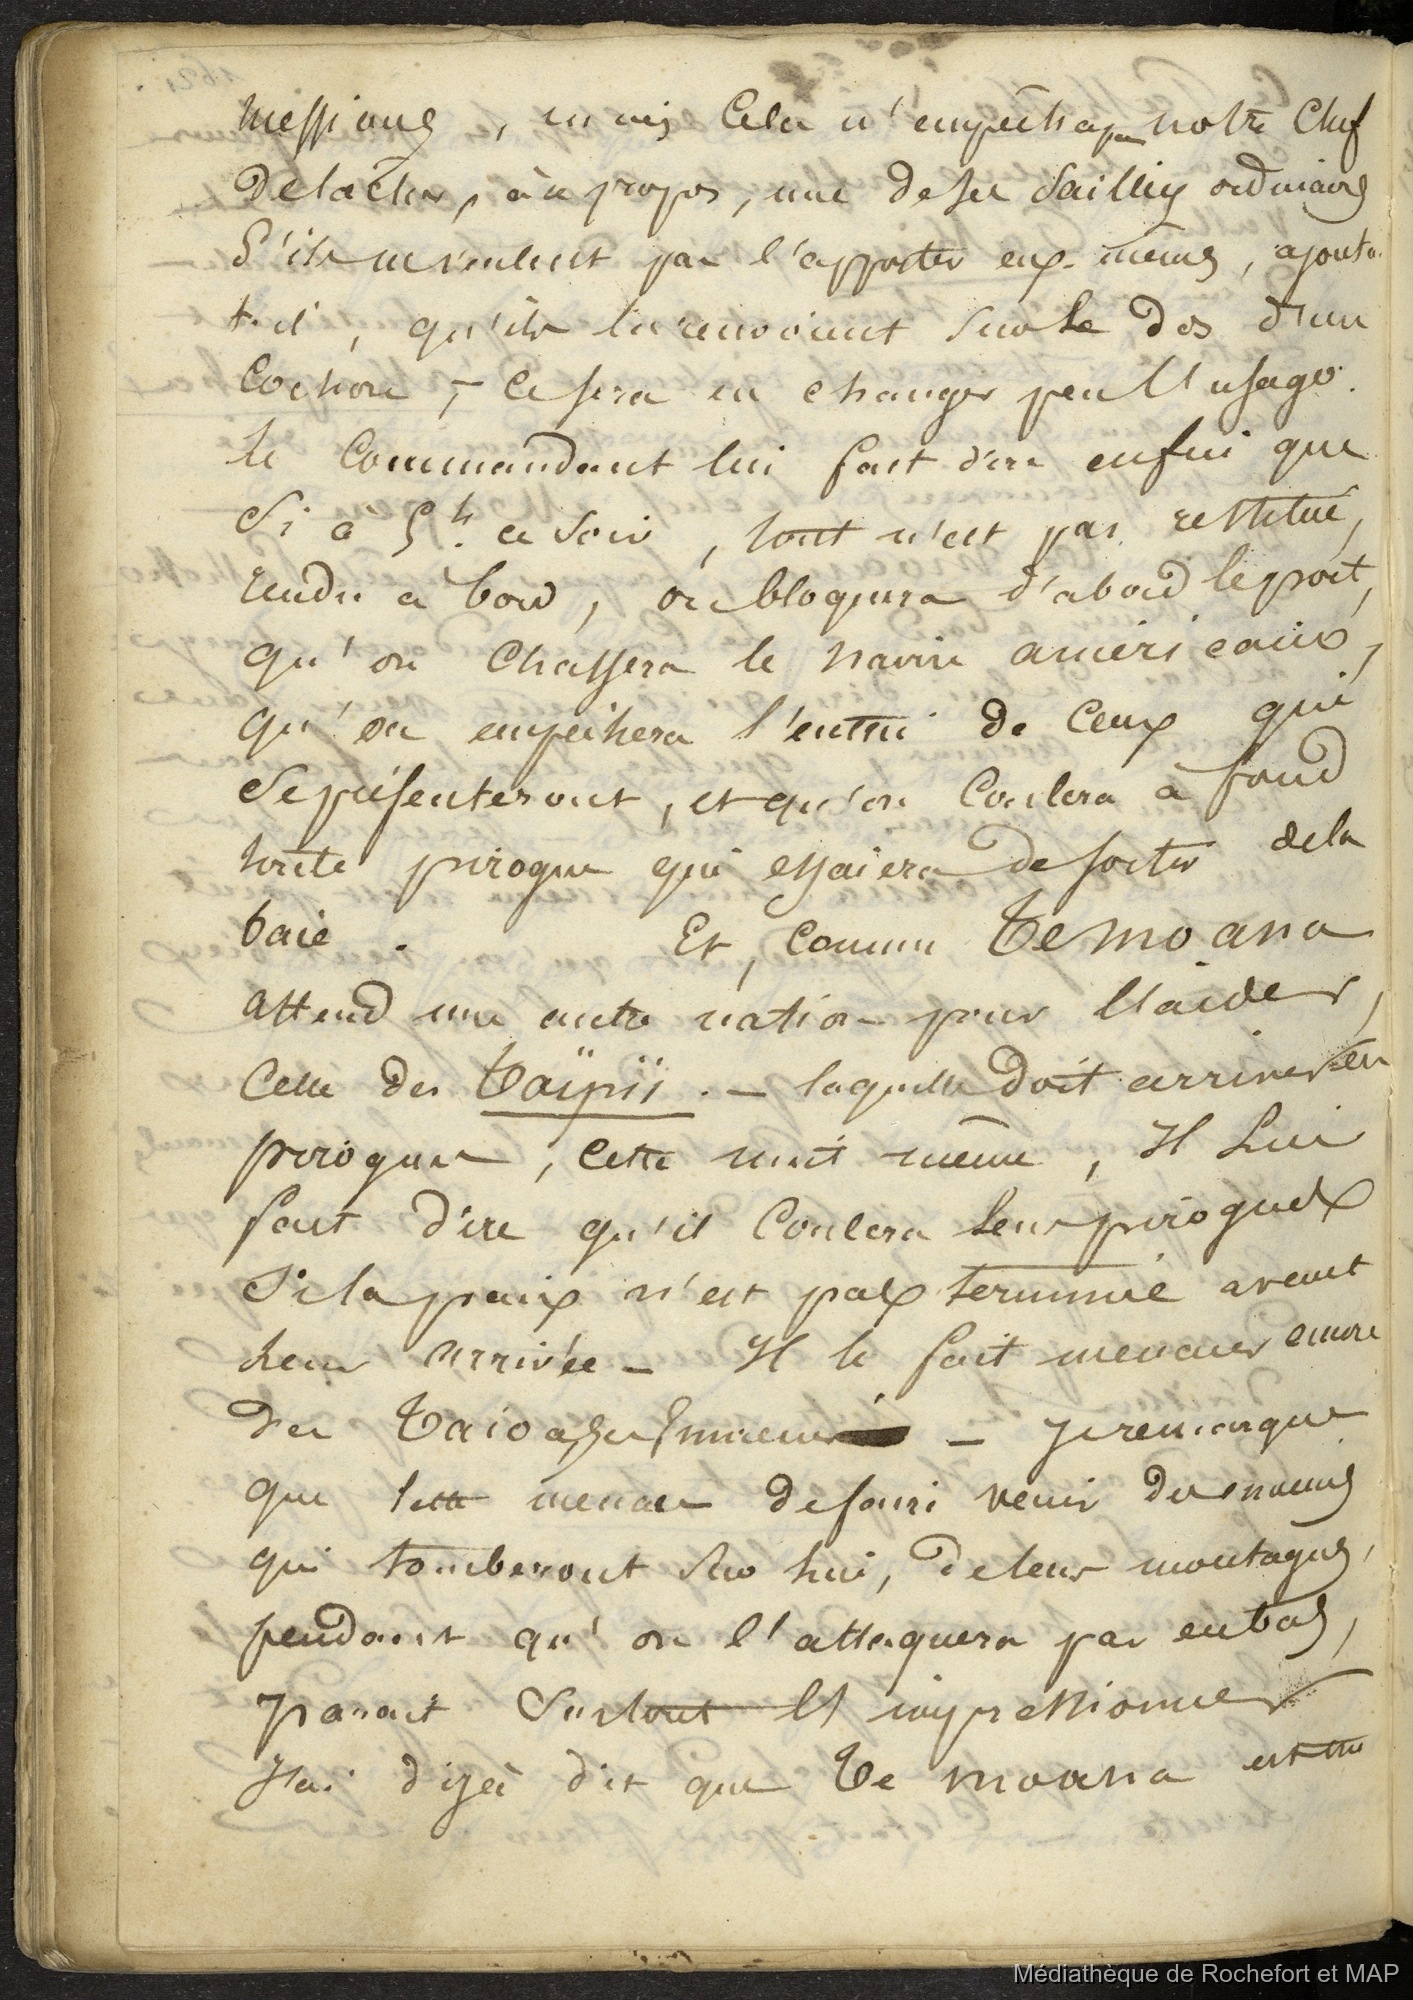 missions, mais cela n'empêcha pas notre chef
de lacher, à ce propos, une de ses saillies ordinaires
S'ils ne veulent pas l'apporter eux-mêmes, ajouta
t-il, qu'ils la renvoient sur le dos d'un
cochon, – ce sera en changer peu l'usage.
Le Commandant lui fait dire enfin que
si à 5h. ce soir, tout n'est pas restitué,
rendu à bord, on bloquera d'abord le port,
qu'on chassera le navire américain,
qu'on empêchera l'entrée de ceux qui
se présenteront, et qu'on coulera à fond
toute pirogue qui essaiera de sortir de la
baie. Et, comme Te moana
attend une autre nation pour l'aider,
celle des Taïpii. – laquelle doit arriver en
pirogues, cette nuit même, Il lui
fait dire qu'il coulera leurs pirogues
si la paix n'est pas terminée avant
leur arrivée – Il le fait menacer encore
des Taioas ses ennemis – Je remarque
que cette menace de faire venir des ennemis
qui tomberont sur lui, de leurs montagnes,
pendant qu'on l'attaquera par en bas,
parait surtout l'impressionner
J'ai déjà dit que Te moana est
Médiathèque de Rochefort et MAP